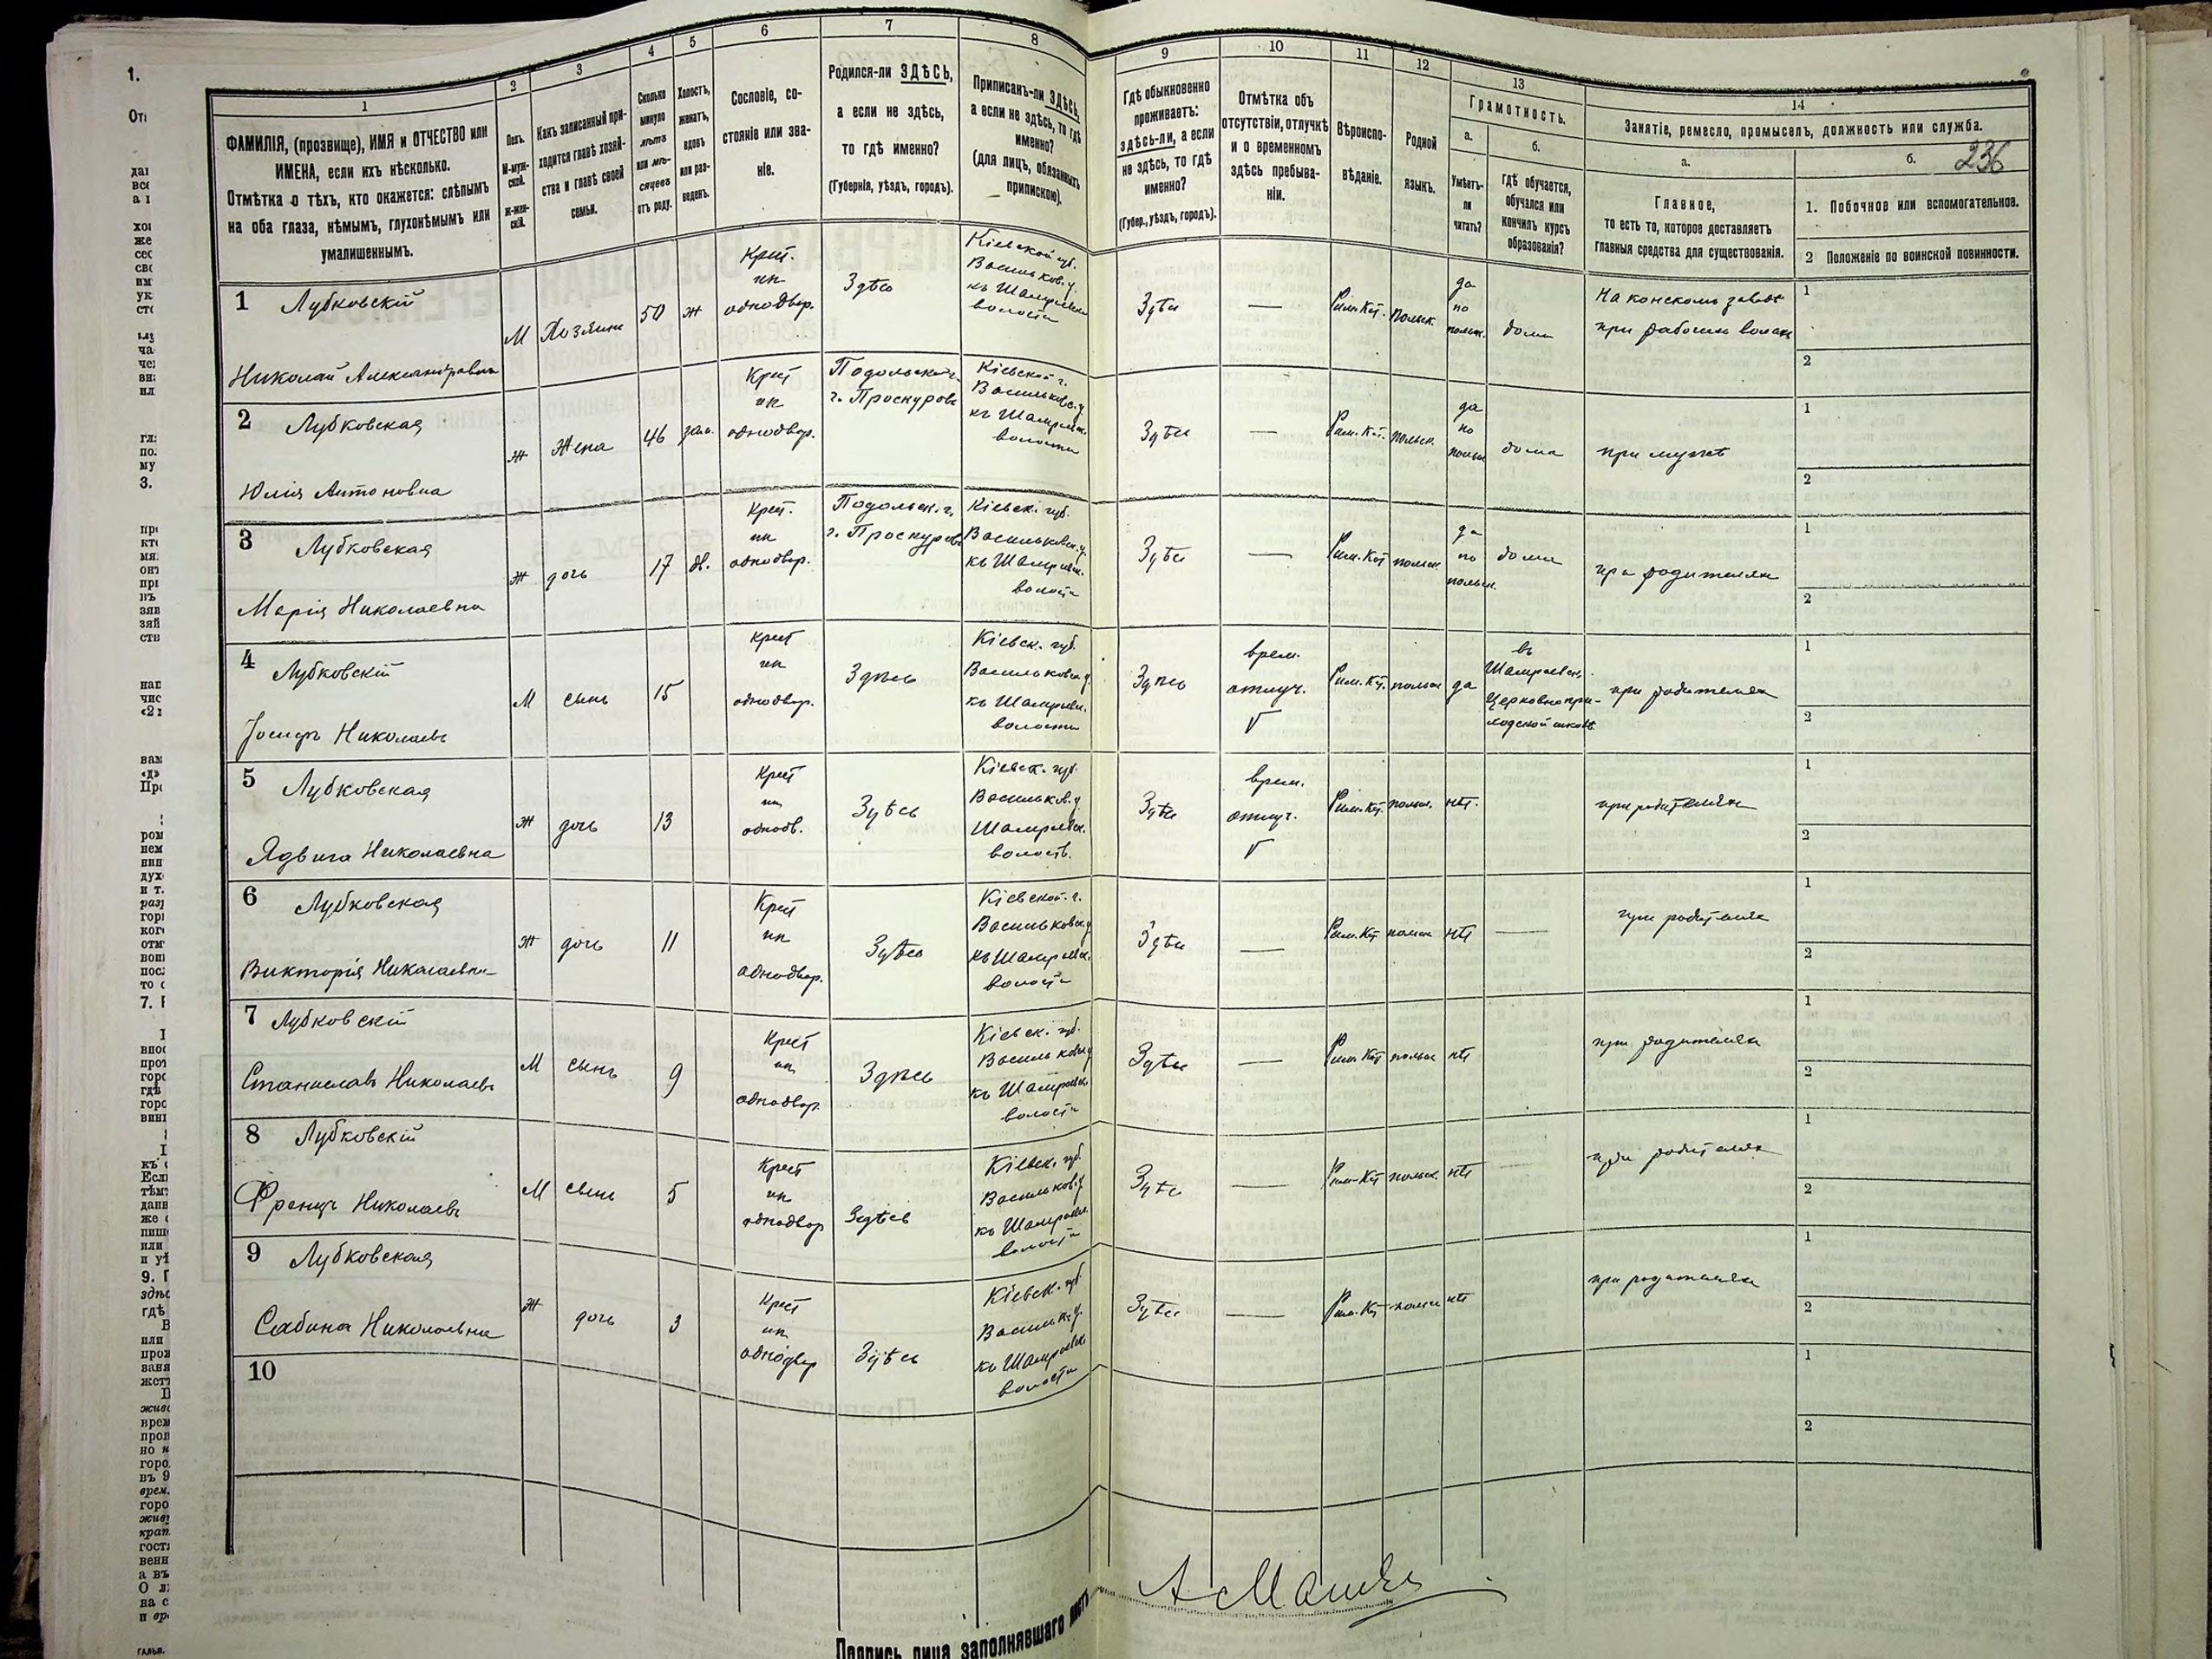 1.
1
2
3
4
5
6
7
8
9
10
11
12
13
14
236
ФАМИЛІЯ, (прозвище), ИМЯ и ОТЧЕСТВО или
ИМЕНА, если ихъ нѣсколько.
Отмѣтка о тѣхъ, кто окажется: слѣпымъ
на оба глаза, нѣмымъ, глухонѣмымъ или
умалишеннымъ.
Полъ.
М-муж-
ской.
Ж-жен-
скій.
Какъ записанный при-
ходится главѣ хозяй-
ства и главѣ своей
семьи.
Сколько
минуло
лѣтъ
или мѣ-
сяцевъ
отъ роду.
Холостъ,
женатъ,
вдовъ
или раз-
веденъ.
Сословіе, со-
стояніе или зва-
ніе.
Родился-ли ЗДѢСЬ,
а если не здѣсь,
то гдѣ именно?
(Губернія, уѣздъ, городъ).
Приписанъ-ли ЗДѢСЬ,
а если не здѣсь, то гдѣ
именно?
(для лицъ, обязанныхъ
припискою).
Гдѣ обыкновенно
проживаетъ:
здѣсь-ли, а если
не здѣсь, то гдѣ
именно?
(Губер., уѣздъ, городъ).
Отмѣтка объ
отсутствіи, отлучкѣ
и о временномъ
здѣсь пребыва-
ніи.
Вѣроиспо-
вѣданіе.
Родной
языкъ.
Грамотность.
а.
Умѣетъ-
ли
читать?
б.
Гдѣ обучается,
обучался или
кончилъ курсъ
образованія?
Занятіе, ремесло, промыселъ, должность или служба.
а.
Главное,
то есть то, которое доставляетъ
главныя средства для существованія.
б.
1. Побочное или вспомогательное.
2 Положеніе по воинской повинности.
1 Лубковскій
Николай Александровъ
М
Хозяинъ
50
ж
Крест.
ин
однодвор.
Здѣсь
Кіевской губ.
Васильков. у.
къ Шамраевск
волости
Здѣсь
—
Рим. Кат.
польск.
да
по
польск.
дома
На конскомъ заводѣ
при рабочихъ волахъ
1
2
2 Лубковская
Юлія Антоновна
Ж
Жена
46
зам.
Крест
ин
однодвор.
Подольской г.
г. Проскуровъ
Кіевской г.
Васильковс. у
къ Шамраев.
волости
Здѣсь
—
Рим. Кат.
польск.
да
по
польск
дома
при мужѣ
1
2
3 Лубковская
Марія Николаевна
Ж
дочь
17
дѣ.
Крест.
ин
однодвор.
Подольск. г.
г. Проскуровъ
Кіевск. губ.
Васильковск. у.
къ Шамраевск.
волости
Здѣсь
—
Рим. Кат
польск
да
по
польск.
дома
при родителяхъ
1
2
4 Лубковскій
Іосифъ Николаевъ
М
сынъ
15
Крест
ин
однодвор.
Здѣсь
Кіевск. губ.
Васильковск у.
къ Шамраев.
волости
Здѣсь
врем.
отлуч.
V
Рим. Кат.
польск
да
въ
Шамраевск.
Церковнопри-
ходской школѣ
при родителяхъ
1
2
5 Лубковская
Ядвига Николаевна
Ж
дочь
13
Крест
ин
однодв.
Здѣсь
Кіевск. губ.
Васильков. у.
Шамраевск.
волость.
Здѣсь
врем.
отлуч.
V
Рим. Кат.
польск.
нѣт.
при родителяхъ
1
2
6 Лубковская
Викторія Николаевна
Ж
дочь
11
Крест
ин
однодвор.
Здѣсь
Кіевской. г.
Васильковск у
къ Шамраевск.
волости
Здѣсь
—
Рим. Кат
польск
нѣт
—
при родителях
1
2
7 Лубковскій
Станиславъ Николаевъ
М
сынъ
9
Крест
ин
однодвор.
Здѣсь
Кіевск. губ.
Васильковск у
къ Шамраевск
волости
Здѣсь
—
Рим. Кат
польск
нѣт
при родителяхъ
1
2
8 Лубковскій
Францъ Николаевъ
М
сынъ
5
Крест
ин
однодвор
Здѣсь
Кіевск. губ.
Васильков. у
къ Шамраевск
волости
Здѣсь
—
Рим-Кат
польск.
нѣт
при родителях
1
2
9 Лубковская
Сабина Николаевна
Ж
дочь
3
Крест
ин
однодвор
Здѣсь
Кіевск. губ.
Васильк. у.
къ Шамраевск
волости
Здѣсь
—
Рим. Кат
польск
нѣт
при родителяхъ
1
2
10
1
2
Подпись лица заполнявшаго листъ